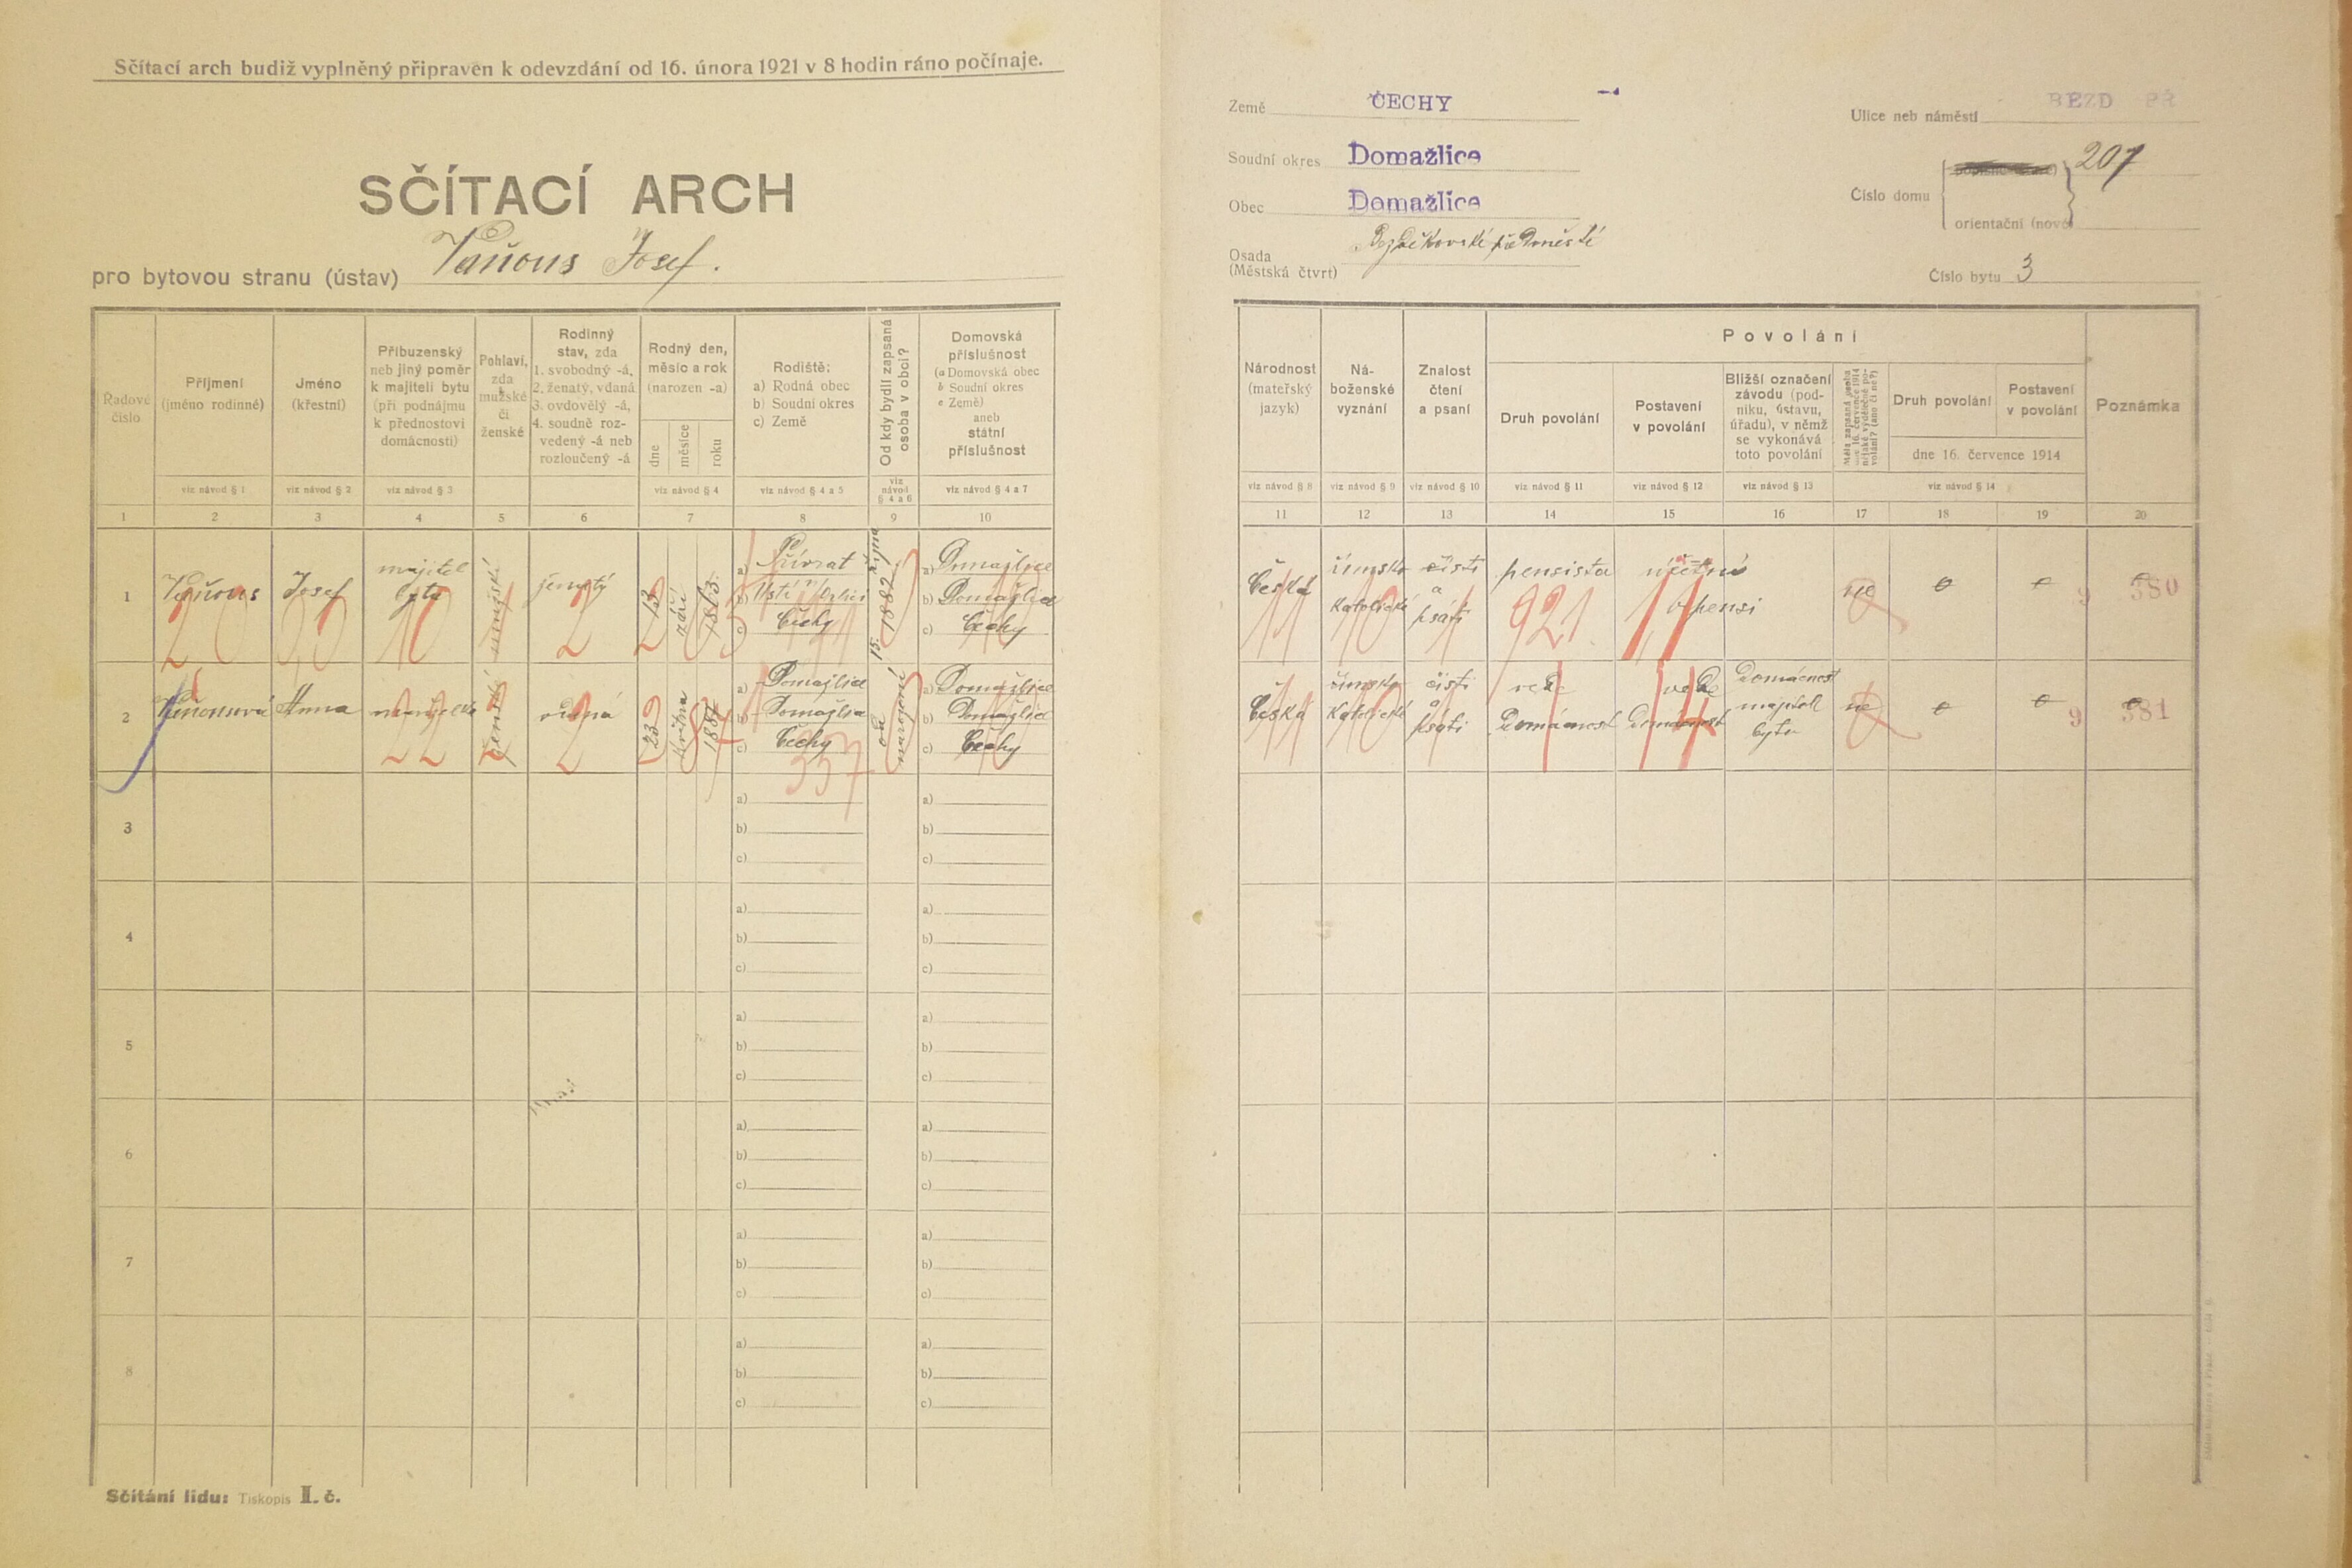 Sčítací arch budiž vyplněný připraven k odevzdání od 16. února 1921 v 8 hodin ráno počínaje.
SČÍTACÍ ARCH
pro bytovou stranu (ústav) Vaňous Josef.
Země ČECHY
Soudní okres Domažlice
Obec Domažlice
Osada
(Městská čtvrt)
Ulice neb náměstí BEZD PŘ
Číslo domu
207
orientační (nové)
Číslo bytu 3
Řadové
číslo
Příjmení
(jméno rodinné)
Jméno
(křestní)
Příbuzenský
neb jiný poměr
k majiteli bytu
(při podnájmu
k přednostovi
domácnosti)
Pohlaví,
zda
mužské
či
ženské
Rodinný
stav, zda
1. svobodný -á,
2. ženatý, vdaná
3. ovdovělý -á,
4. soudně roz-
vedený -á neb
rozloučený -á
Rodný den,
měsíc a rok
(narozen -a)
dne
měsíce
roku
Rodiště:
a) Rodná obec
b) Soudní okres
c) Země
Od kdy bydlí zapsaná
osoba v obci?
Domovská
příslušnost
(a Domovská obec
b Soudní okres
c Země)
aneb
státní
příslušnost
viz návod § 1
viz návod § 2
viz návod § 3
viz návod § 4
viz návod § 4 a 5
viz
návod
§ 4 a 6
viz návod § 4 a 7
1 2 3 4 5 6 7 8 9 10
Národnost
(mateřský
jazyk)
Ná-
boženské
vyznání
Znalost
čtení
a psaní
Povolání
Druh povolání
Postavení
v povolání
Bližší označení
závodu (pod-
niku, ústavu,
úřadu), v němž
se vykonává
toto povolání
Druh povolání
Postavení
v povolání
dne 16. července 1914
Poznámka
viz návod § 8
viz návod § 9
viz návod § 10
viz návod § 11
viz návod § 12
viz návod § 13
viz návod § 14
11 12 13 14 15 16 17 18 19 20
1
Vaňous
Josef
majitel
bytu
mužské
ženatý
2
13
září
a) Přívrat
b)
c) Čechy
15. října
1882
a) Domažlice
b) Domažlice
c) Čechy
česká
11
římsko
katolické
10
čísti
a
psáti
pensista
921
v pensi
ne
380
2
Vaňousová
Anna
manželka
22
ženské
vdaná
2
23
května
a) Domažlice
b) Domažlice
c) Čechy
357
od
narození
a) Domažlice
b) Domažlice
c) Čechy
česká
11
římsko
katolické
10
čísti
a
psáti
vede
domácnost
vede
domácnost
14
domácnost
majitele
bytu
ne
9
381
3
a)
b)
c)
a)
b)
c)
4
a)
b)
c)
a)
b)
c)
5
a)
b)
c)
a)
b)
c)
6
a)
b)
c)
a)
b)
c)
7
a)
b)
c)
a)
b)
c)
8
a)
b)
c)
a)
b)
c)
Sčítání lidu: Tiskopis I. č.